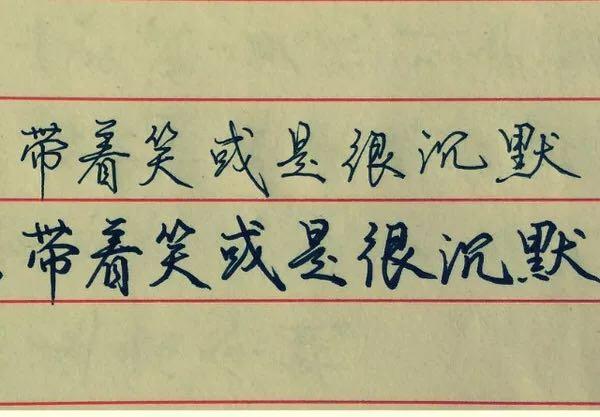 带着笑或是很沉默
带着笑或是很沉默